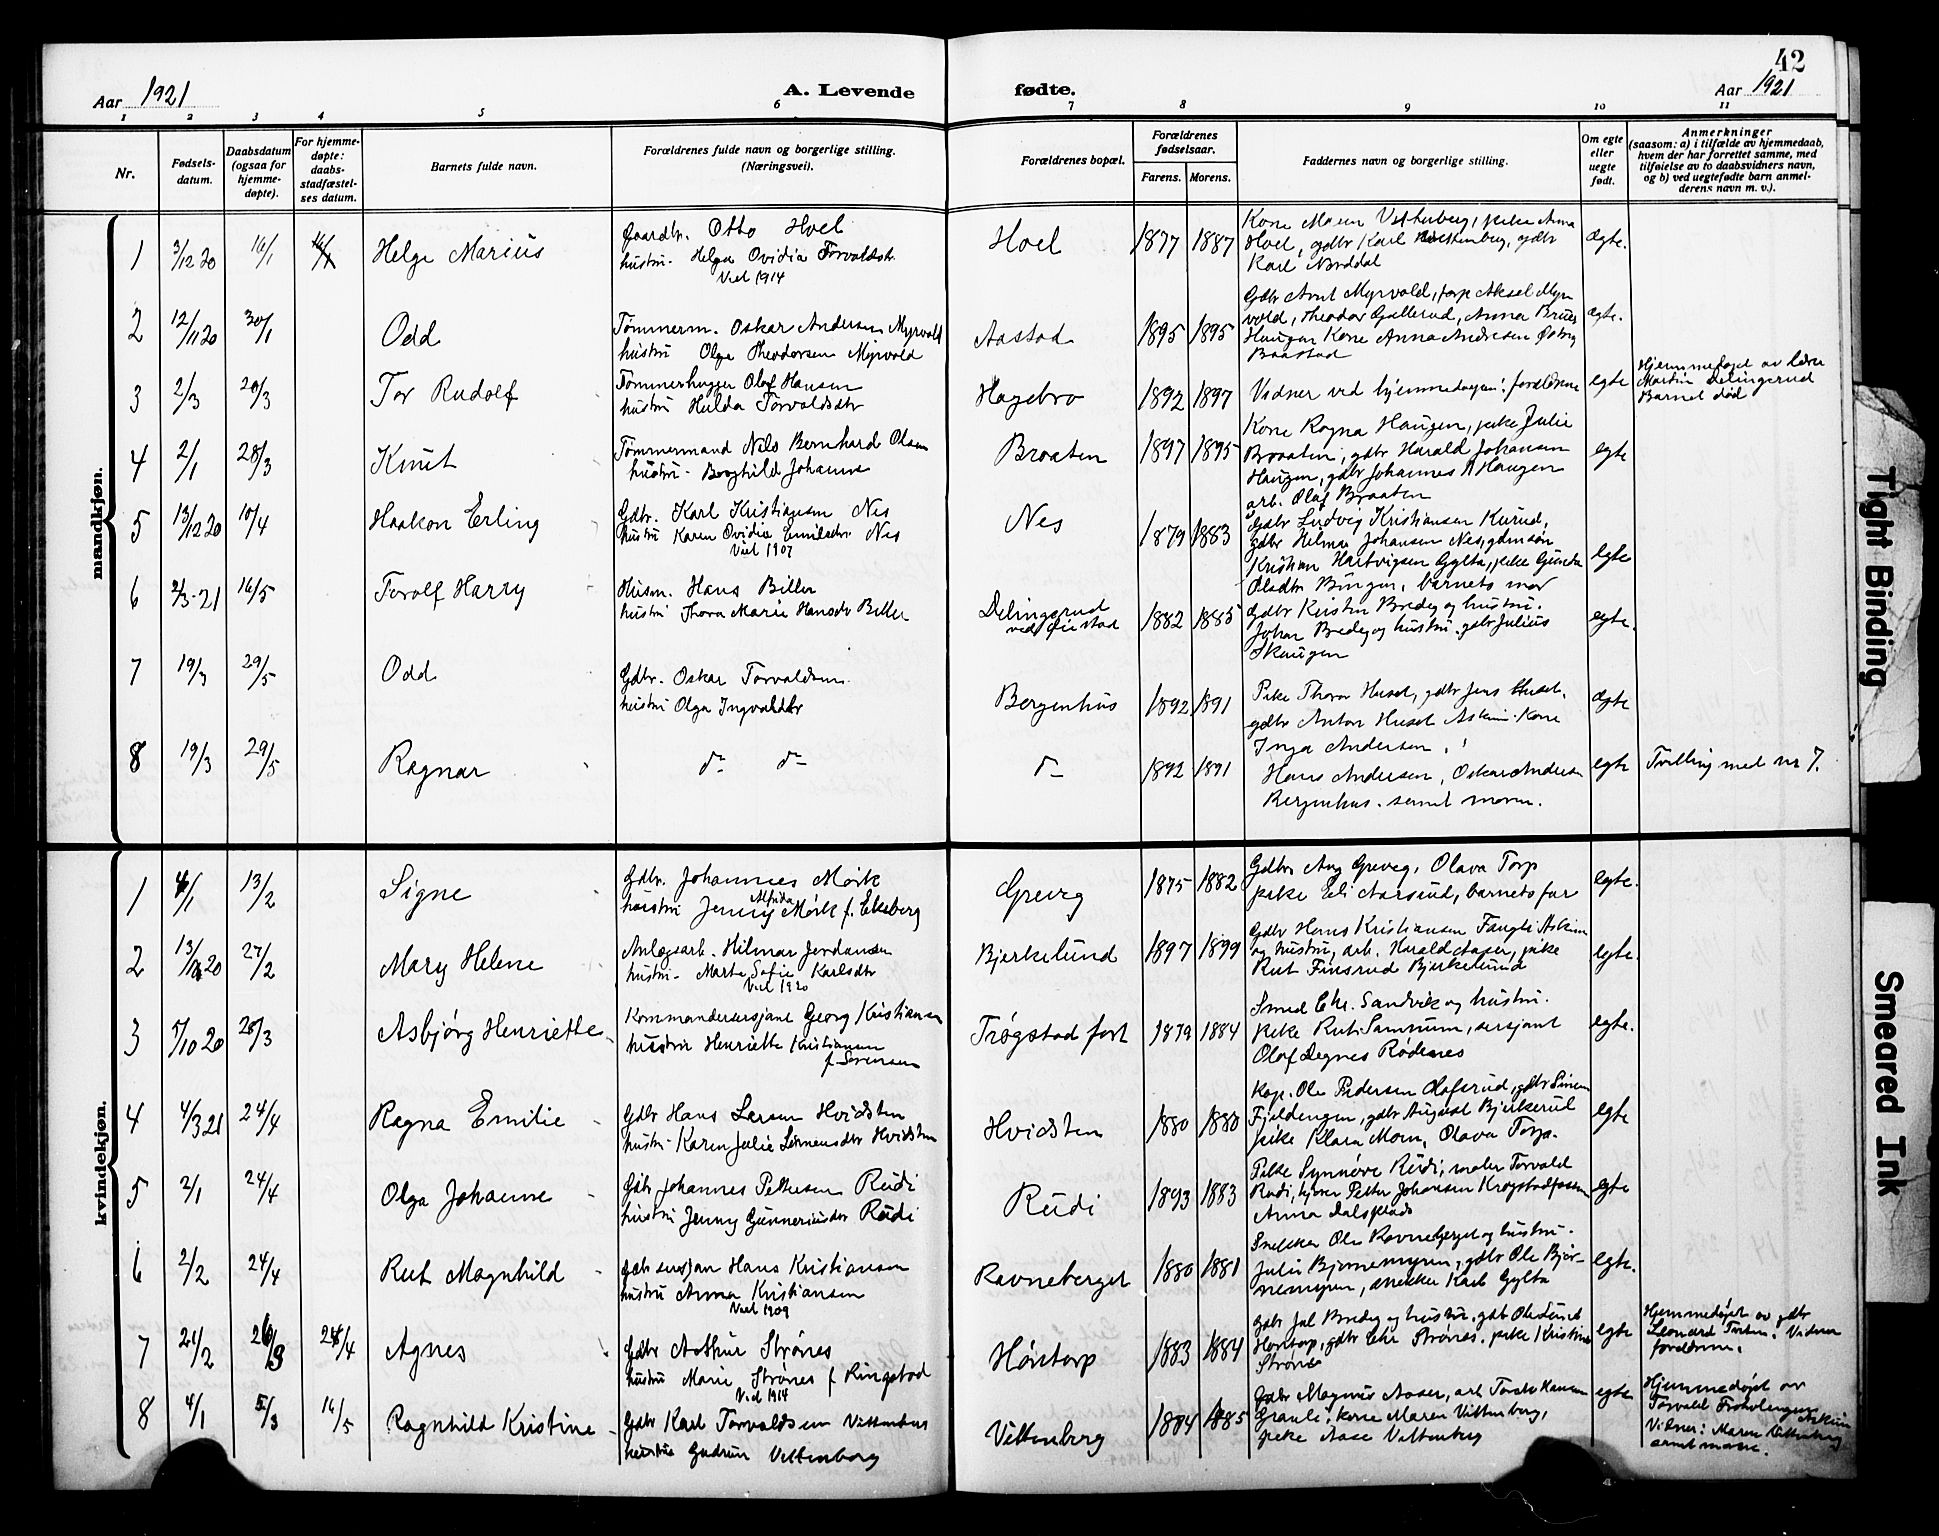 42
Aar 1921
A. Levende
fødte.
Aar 1921
1 2 3 4 5 6 7 8 9 10 11
Nr.
Fødsels-
datum.
Daabsdatum
(ogsaa for
hjemme-
døpte).
For hjemme-
døpte:
daabs-
stadfæstel-
ses datum.
Barnets fulde navn.
Forældrenes fulde navn og borgerlige stilling.
(Næringsvei).
Forældrenes bopæl.
Forældrenes
fødselsaar.
Farens. Morens.
Faddernes navn og borgerlige stilling.
Om egte
eller
uegte
født.
Anmerkninger
(saasom: a) i tilfælde av hjemmedaab,
hvem der har forrettet samme, med
tilføielse av to daabsvidners navn,
og b) ved uegtefødte barn anmel-
derens navn m. v.).
mandkjøn.
1 3/12 20 16/1 Helge Marius
Gaardbr. Otto Hoel
hustru. Helga Ovidia Torvaldsdtr
Viet 1914
Hoel 1877 1887
Kone Maren Vittenberg, pike Anna
Hoel, gdbr Karl Vittenberg, gdbr
Karl Norddal
ægte.
2 12/11 20 30/1 Odd
Tømmerm. Oskar Andersen Myrvold
hustru Olga Theodorsen Myrvold
Aastad 1895 1895
Gdbr Arnt Myrvold, Aksel Myr
vold, Theodor Gallerud, Anna
Haugen Kone Anna Andresen
Baastad
ægte.
3 2/3 20/3 Tor Rudolf
Tømmerhugger Olaf Hansen
hustru Hulda Torvaldsdtr
Hagebro 1892 1897
Vidner ved hjemmedaapen: forældrene
egte
Hjemmedøpt av lærer
Martin Delingsrud
Barnet død
4 2/1 28/3 Knut
Tømmermand Nils Bernhard Olsen
hustru Borghild Johanne
Braaten 1897 1895
Kone Ragna Haugen, pike Julie
Braaten, gdbr Harald Johansen
Haugen, gdbr Johannes Haugen
arb. Olaf Braaten
egte
5 13/12 20 10/4 Haakon Erling
Gdbr. Karl Kristiansen Nes
hustru Karen Ovidia Emilsdtr. Nes
Viet 1907
Nes 1879 1883
Gdbr Ludvig Kristiansen Kurud,
gdbr Helmer Johansen Nes, gdmsøn
Kristian Hartvigsen Gylta, pike Gunda
Olsdtr Bingen, barnets mor
egte
6 2/3-21 16/5 Torolf Harry
Husm. Hans Biller
hustru Thora Marie Hansdtr Biller
Delingsrud
ved Øiestad 1882 1885
Gdbr Kristen Bredeg og hustru.
Johan Bredeg og hustru. gdbr Julius
Skaugen
egte.
7 19/3 29/5 Odd
Gdbr. Oskar Torvaldsen
hustru Olga Ingvaldsdtr
Bergenhus 1892 1891
Pike Thora Huset, gdbr Jens Huset,
gdbr Anton Huset Askim. Kone
Inga Andersen,
ægte
8 19/3 29/5 Ragnar
do do
do 1892 1891
Hans Andersen, Oskar Andersen
Bergenhus. samt moren.
egte
Tvilling med nr 7.
kvindekjøn.
1 4/1 13/2 Signe
Gdbr. Johannes Mørk
hustru Jenny Alfrida Mørk f. Ekeberg
Greveg 1875 1882
Gdbr Aug Greveg, Olava Torp
pike Eli Aarsrud, barnets far
egte.
2 13/12 20 27/2 Mary Helene
Anlægsarb. Hilmar Jordansen
hustru. Marta Sofie Karlsdtr
Viet 1920
Bjerkelund 1897 1899
Gdbr Hans Kristiansen Fangli Askim
og hustru, arb. Harald Aaser, pike
Rut Finsrud Bjerkelund
egte.
3 5/10 20 28/3 Asbjørg Henriette
Kommandersersjant Georg Kristiansen
hustru Henriette Kristiansen
f. Sørensen
Trøgstad fort 1879 1884
Smed Chr. Sandvik og hustru.
Pike Rut Samnum, sersjant
Olaf Degnes Rødenes
egte.
4 4/3 21 24/4 Ragna Emilie
Gdbr Hans Larsen Hvidsten
hustru. Karen Julie Hvidsten
Hvidsten 1880 1880
Kap. Ole Pedersen Olafsrud, gdbr Simen
Fjeldengen, gdbr August Bjerkerud
pike Klara Moen, Olava Torp.
egte
5 2/1 24/4 Olga Johanne
Gdbr Johannes Pettersen Rudi
hustru Jenny Gunneriusdtr Rudi
Rudi 1893 1883
Pike Synnøve Rudi, maler Torvald
Rudi, Petter Johansen Krogstadfossen
Anna Dalsplads
egte
6 2/2 24/4 Rut Magnhild
Gdbr sersjan Hans Kristiansen
hustru Anna Kristiansen
Viet 1909
Ravneberget 1880 1881
Snekker Ole Ravneberget og hustru.
Julie Bjørnemyren, gdbr Ole Bjør-
nemyren, snekker Karl Gylta
egte.
7 21/2 26/3 24/4 Agnes
Gdbr Arthur Strønes
hustru Marie Strønes f Ringstad
Viet 1914
Høntorp 1883 1884
gdbr Jul Bredeg og hustru, gdb Ole Lund
Høntorp, gdbr Chr Strønes. pike Kristine
Strønes
egte
Hjemmedøpt av gdbr
Leonard Torten. Vidner
forældrene.
8 4/1 5/3 16/5 Ragnhild Kristine
Gdbr Karl Torvaldsen Vittenberg
hustru Gudrun Vittenberg
Vittenberg 1884 1885
Gdbr Magnus Aaser, arb Tord Hansen
Granli, kone Maren Vittenberg,
pike Aase Vittenberg
egte
Hjemmedøpt av
Torvald Froholengen
Askim
Vidner: Maren Vittenberg
samt moren.
Tight Binding
Smeared Ink